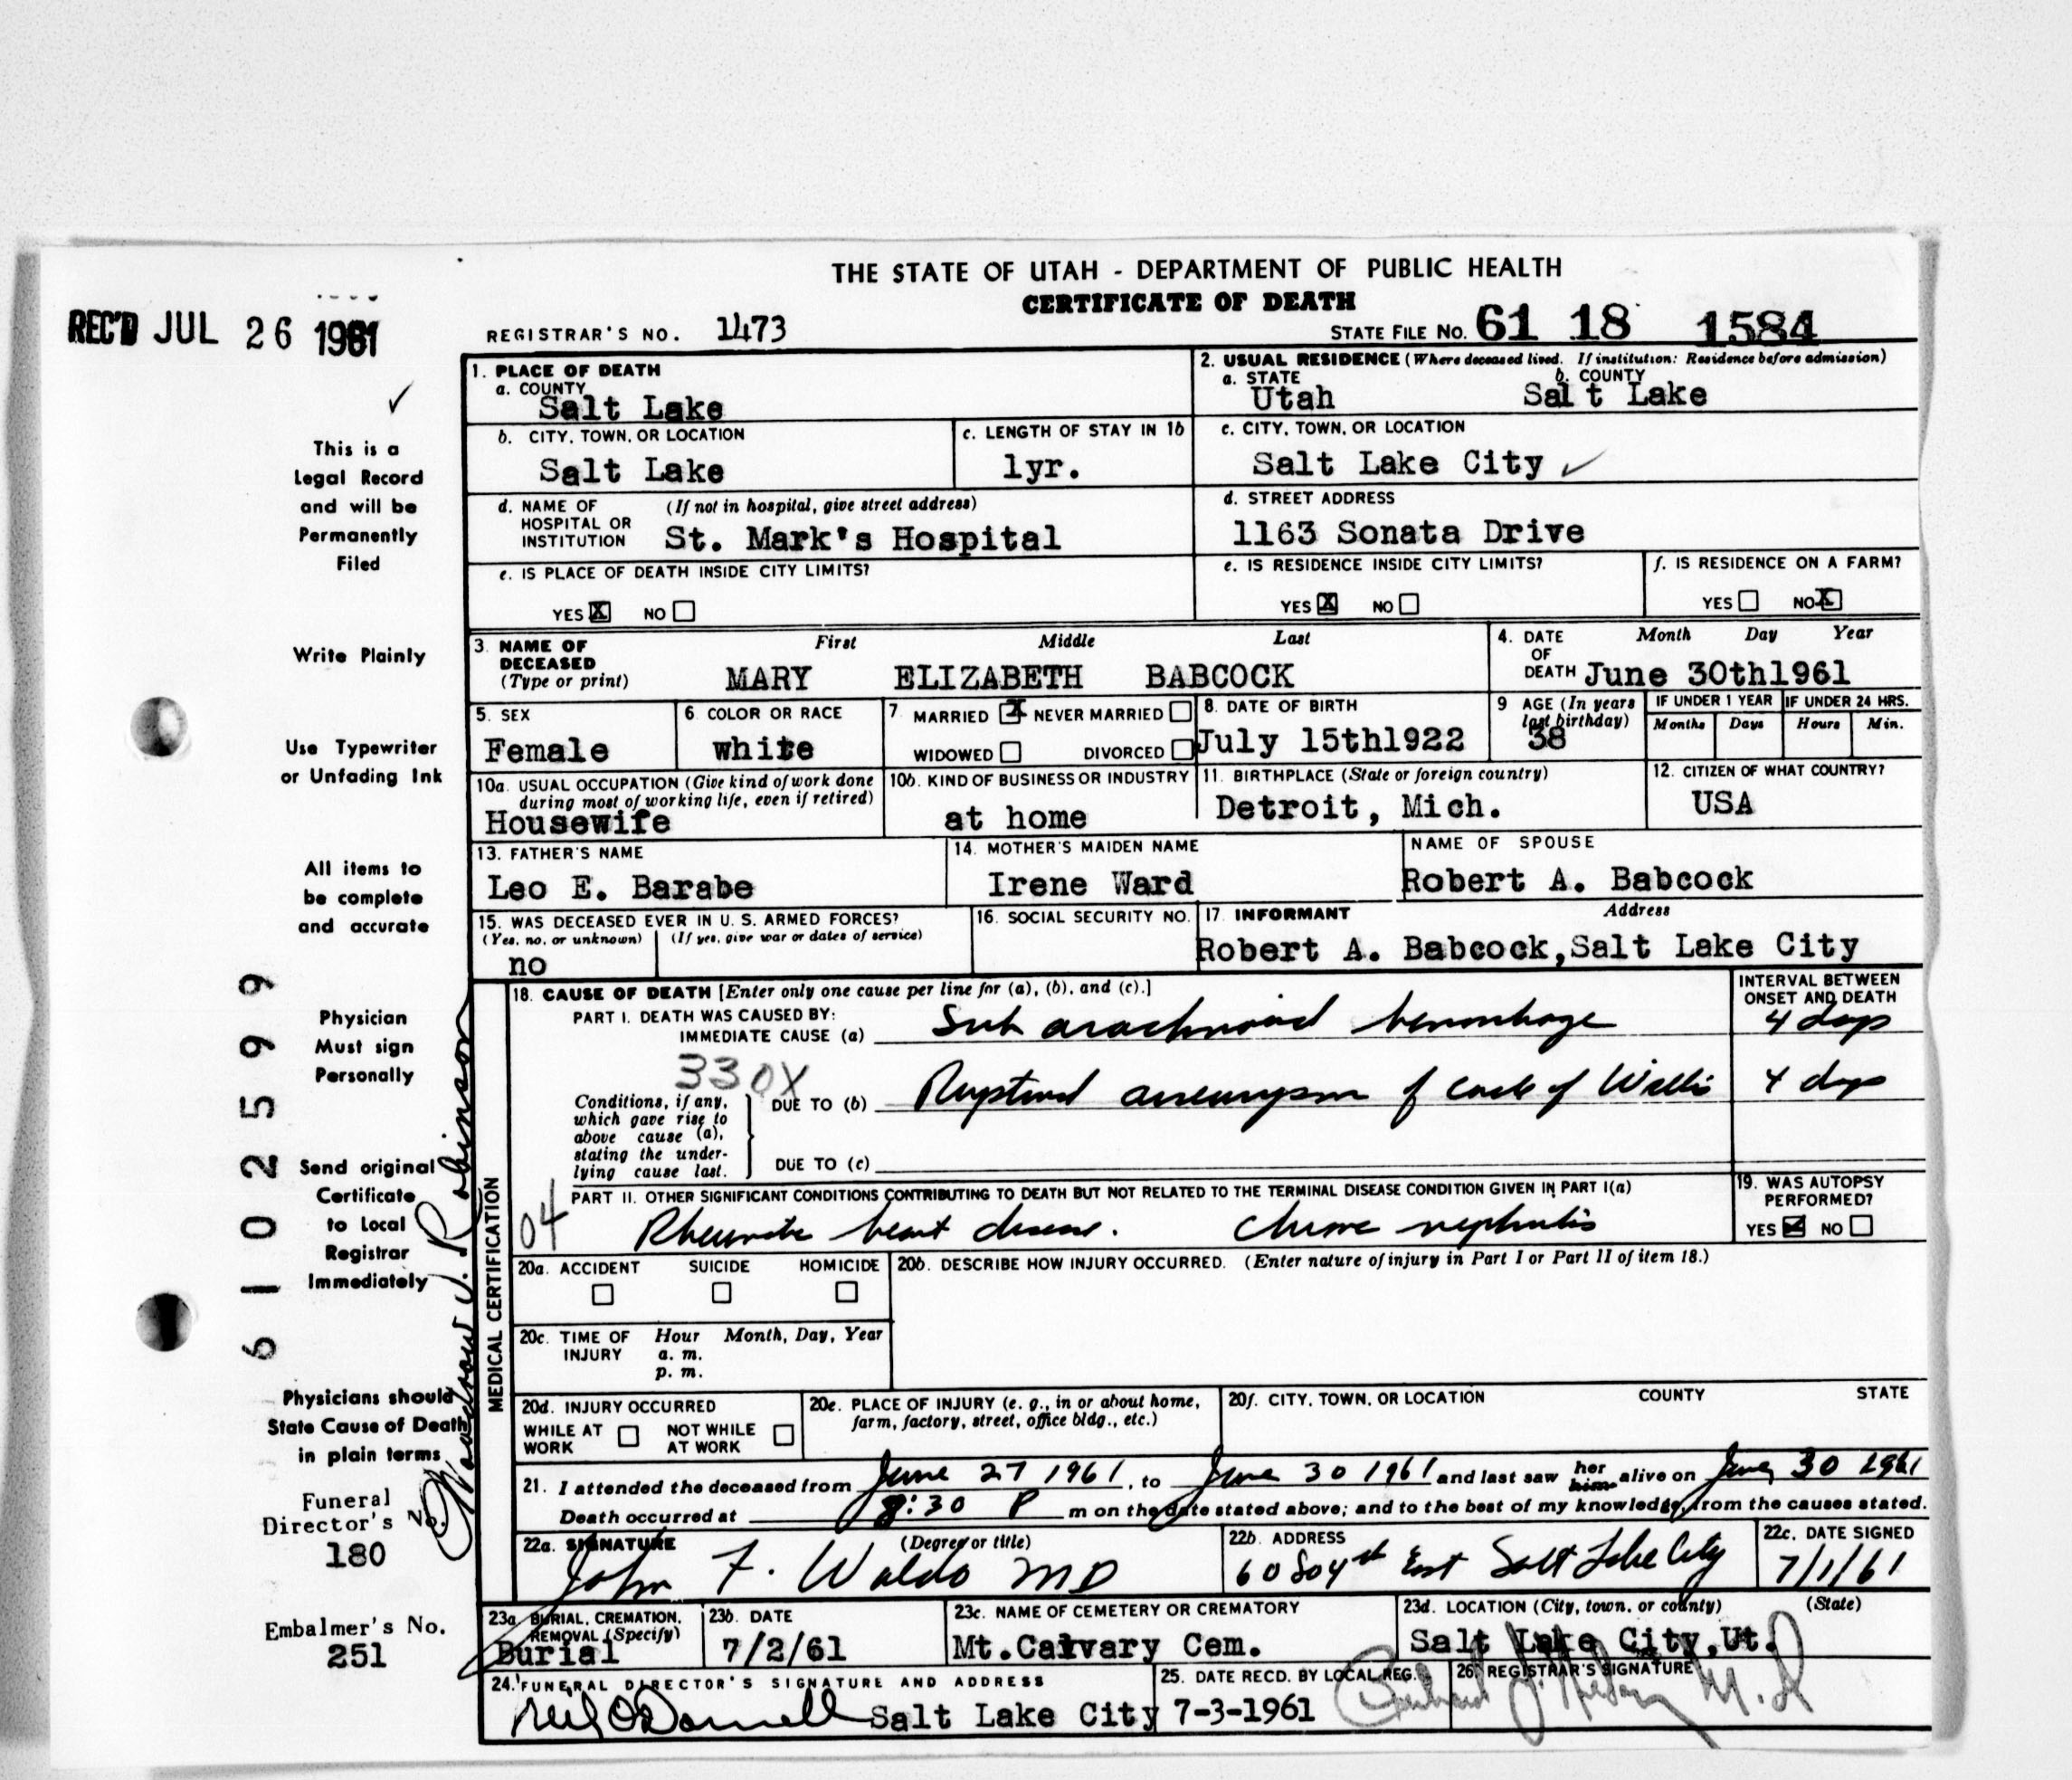 THE STATE OF UTAH - DEPARTMENT OF PUBLIC HEALTH
CERTIFICATE OF DEATH
REC'D JUL 26 1961
REGISTRAR'S NO. 1473
STATE FILE NO. 61 18 1584
1. PLACE OF DEATH
a. COUNTY
Salt Lake
2. USUAL RESIDENCE (Where deceased lived. If institution: Residence before admission)
a. STATE
Utah
b. COUNTY
Salt Lake
b. CITY, TOWN, OR LOCATION
Salt Lake
c. LENGTH OF STAY IN 1b
1yr.
c. CITY, TOWN, OR LOCATION
Salt Lake City ✓
d. NAME OF HOSPITAL OR INSTITUTION (If not in hospital, give street address)
St. Mark's Hospital
d. STREET ADDRESS
1163 Sonata Drive
e. IS PLACE OF DEATH INSIDE CITY LIMITS?
YES X NO
e. IS RESIDENCE INSIDE CITY LIMITS?
YES X NO
f. IS RESIDENCE ON A FARM?
YES NO X
3. NAME OF DECEASED (Type or print)
First Middle Last
MARY ELIZABETH BABCOCK
4. DATE OF DEATH Month Day Year
June 30th1961
5. SEX
Female
6. COLOR OR RACE
white
7. MARRIED X NEVER MARRIED
WIDOWED DIVORCED
8. DATE OF BIRTH
July 15th1922
9. AGE (In years last birthday)
38
IF UNDER 1 YEAR
Months Days
IF UNDER 24 HRS.
Hours Min.
10a. USUAL OCCUPATION (Give kind of work done during most of working life, even if retired)
Housewife
10b. KIND OF BUSINESS OR INDUSTRY
at home
11. BIRTHPLACE (State or foreign country)
Detroit, Mich.
12. CITIZEN OF WHAT COUNTRY?
USA
13. FATHER'S NAME
Leo E. Barabe
14. MOTHER'S MAIDEN NAME
Irene Ward
NAME OF SPOUSE
Robert A. Babcock
15. WAS DECEASED EVER IN U. S. ARMED FORCES?
(Yes, no, or unknown) (If yes, give war or dates of service)
no
16. SOCIAL SECURITY NO.
17. INFORMANT Address
Robert A. Babcock,Salt Lake City
MEDICAL CERTIFICATION
18. CAUSE OF DEATH [Enter only one cause per line for (a), (b), and (c).]
INTERVAL BETWEEN ONSET AND DEATH
PART I. DEATH WAS CAUSED BY:
IMMEDIATE CAUSE (a) Sub arachnoid hemorrhage 4 days
330X
Conditions, if any, which gave rise to above cause (a), stating the underlying cause last.
DUE TO (b) Ruptured aneurysm of circle of Willis 4 days
DUE TO (c)
PART II. OTHER SIGNIFICANT CONDITIONS CONTRIBUTING TO DEATH BUT NOT RELATED TO THE TERMINAL DISEASE CONDITION GIVEN IN PART I(a)
04 Rheumatic heart disease. Chronic nephritis
19. WAS AUTOPSY PERFORMED?
YES ✓ NO
20a. ACCIDENT SUICIDE HOMICIDE
20b. DESCRIBE HOW INJURY OCCURRED. (Enter nature of injury in Part I or Part II of item 18.)
20c. TIME OF INJURY Hour Month, Day, Year
a. m.
p. m.
20d. INJURY OCCURRED
WHILE AT WORK NOT WHILE AT WORK
20e. PLACE OF INJURY (e. g., in or about home, farm, factory, street, office bldg., etc.)
20f. CITY, TOWN, OR LOCATION COUNTY STATE
21. I attended the deceased from June 27 1961, to June 30 1961 and last saw her him alive on June 30 1961
Death occurred at 8:30 P m on the date stated above; and to the best of my knowledge, from the causes stated.
22a. SIGNATURE (Degree or title)
John F. Waldo MD
22b. ADDRESS
60 So 4th East Salt Lake City
22c. DATE SIGNED
7/1/61
23a. BURIAL, CREMATION, REMOVAL (Specify)
Burial
23b. DATE
7/2/61
23c. NAME OF CEMETERY OR CREMATORY
Mt.Calvary Cem.
23d. LOCATION (City, town, or county) (State)
Salt Lake City,Ut.
24. FUNERAL DIRECTOR'S SIGNATURE AND ADDRESS
Neil O'Donnell Salt Lake City
25. DATE RECD. BY LOCAL REG.
7-3-1961
26. REGISTRAR'S SIGNATURE
M.D
✓
This is a
Legal Record
and will be
Permanently
Filed
Write Plainly
Use Typewriter
or Unfading Ink
All items to
be complete
and accurate
Physician
Must sign
Personally
Send original
Certificate
to Local
Registrar
Immediately
Physicians should
State Cause of Death
in plain terms
Funeral
Director's No.
180
Embalmer's No.
251
61025999
Woodrow J. Robinson